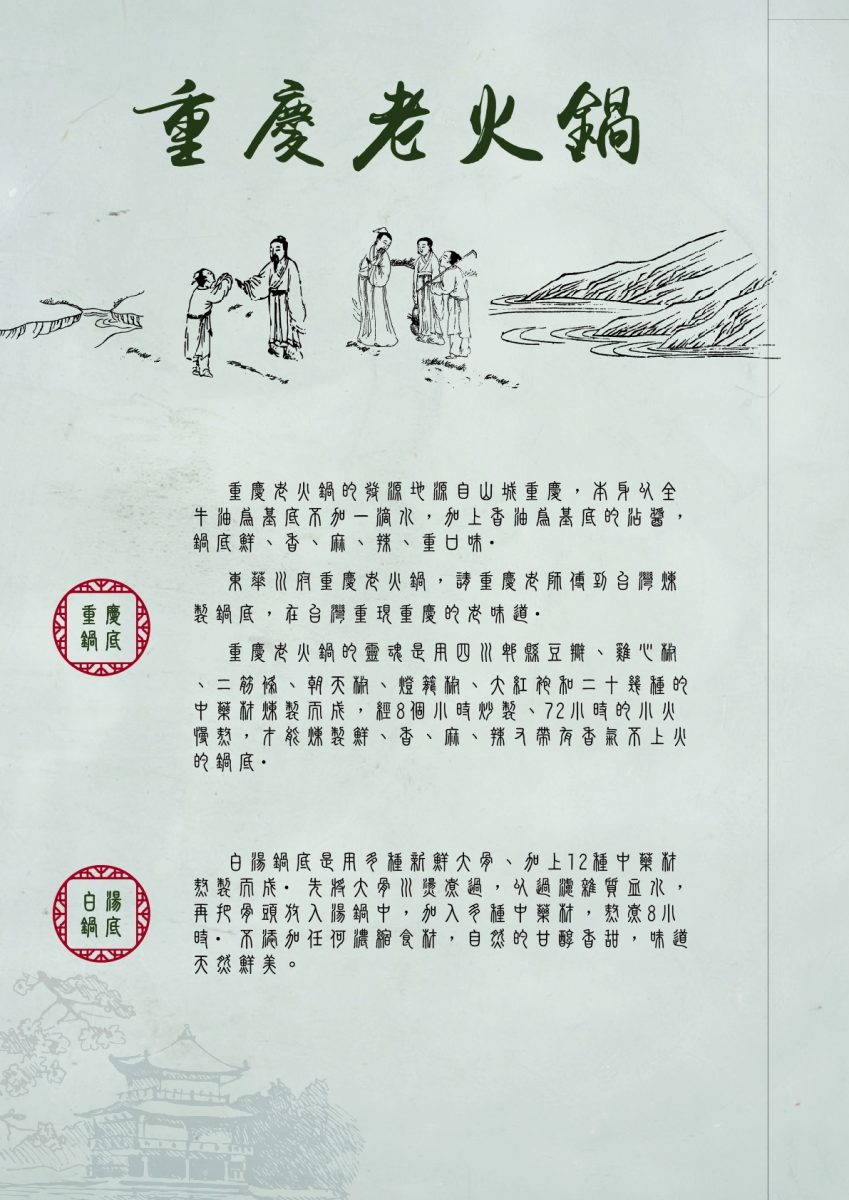 重慶老火鍋
重慶老火鍋的發源地源自山城重慶，本身以全
牛油為基底不加一滴水，加上香油為基底的沾醬，
鍋底鮮、香、麻、辣、重口味。
重慶
鍋底
東華川府重慶老火鍋，請重慶老師傅到台灣煉
製鍋底，在台灣重現重慶的老味道。
重慶老火鍋的靈魂是用四川郫縣豆瓣、雞心椒
、二筋條、朝天椒、燈籠椒、大紅袍和二十幾種的
中藥材煉製而成，經8個小時炒製、72小時的小火
慢熬，才能煉製鮮、香、麻、辣又帶有香氣不上火
的鍋底。
白湯
鍋底
白湯鍋底是用多種新鮮大骨、加上12種中藥材
熬製而成。先將大骨川燙煮過，以過濾雜質血水，
再把骨頭放入湯鍋中，加入多種中藥材，熬煮8小
時。不添加任何濃縮食材，自然的甘醇香甜，味道
天然鮮美。